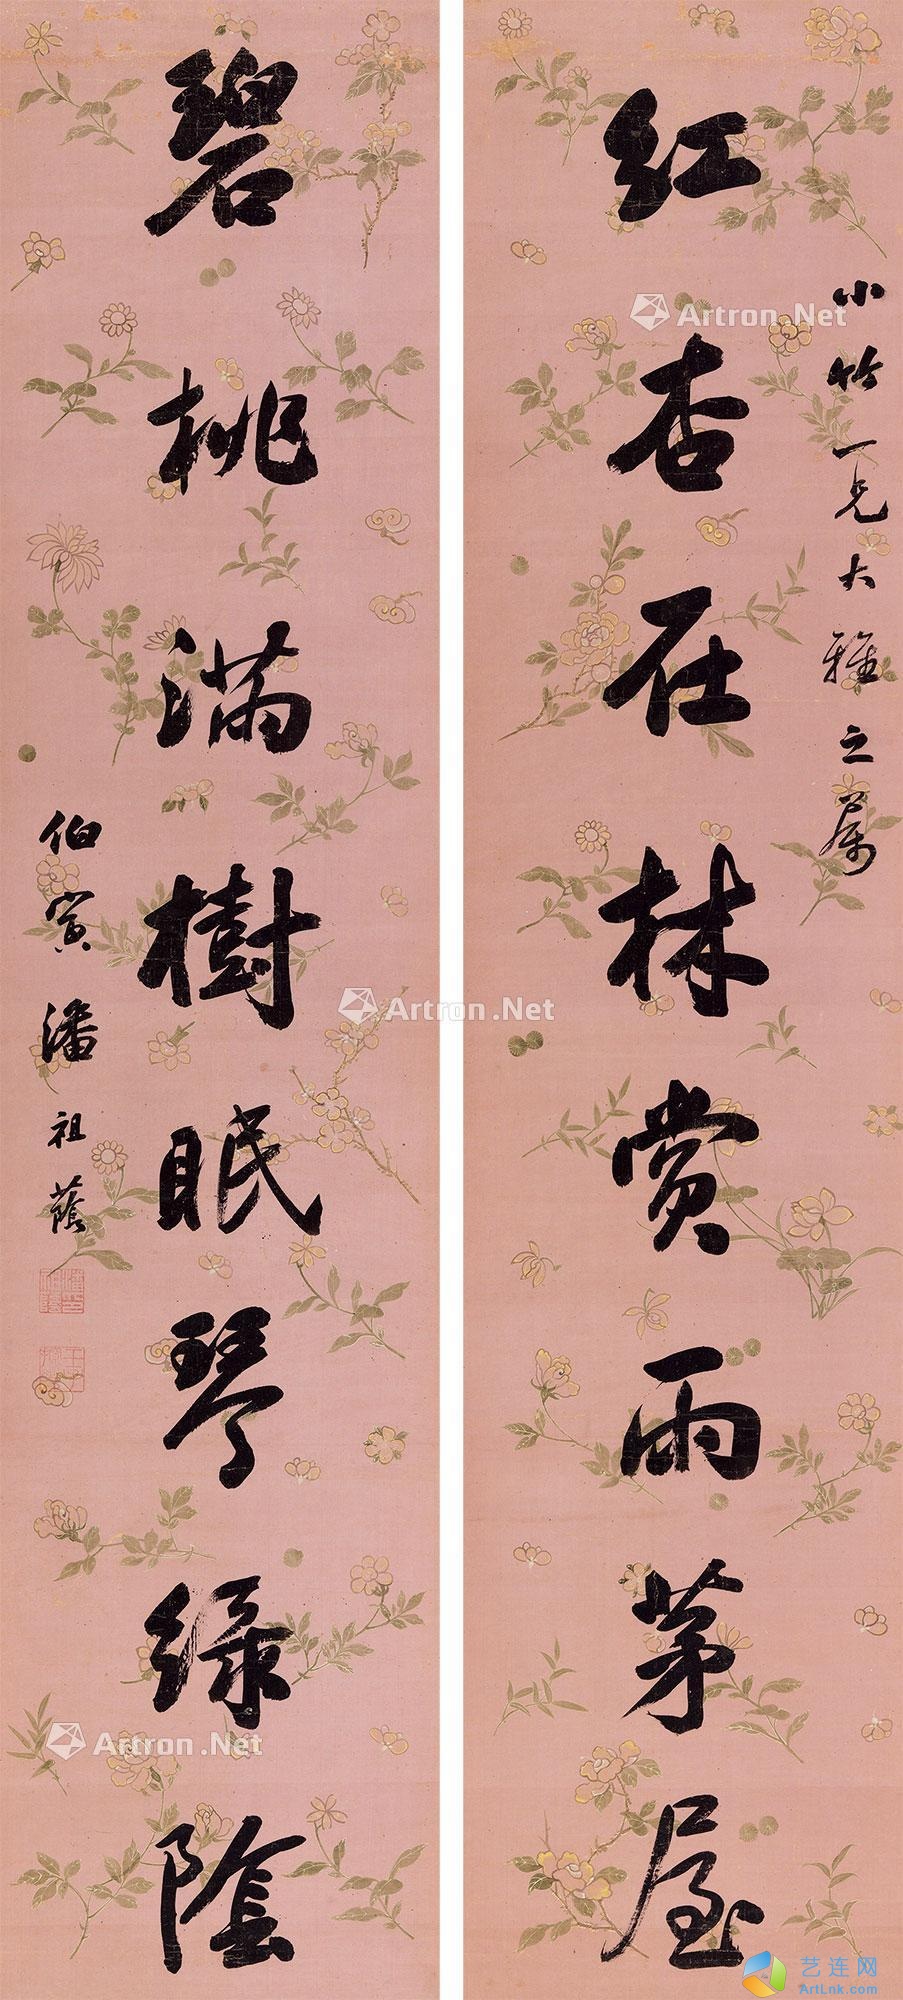 紅杏在林賞雨茅屋
小竹一兄大雅之屬
碧桃滿樹眠琴綠陰
伯寅潘祖蔭
Artron.Net
Artron.Net
Artron.Net
Artron.Net
艺连网
ArtLnk.com